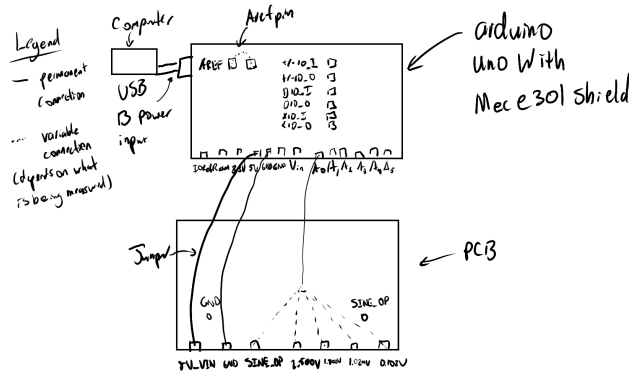 Legend
— permanent
connection
... variable
connection
(depends on what
is being measured)
Computer
USB
B power
input
Aref pin
AREF
+/-10_I
+/-10_O
D10_I
D10_O
X10_I
X10_O
IOREF Reset 3.3V 5V GND GND Vin A0 A1 A2 A3 A4 A5
arduino
UNO With
Mec e 301 Shield
Jumper
PCB
GND
SINE_OP
5V_VIN GND SINE_OP 2.500V 1.02mV 0.102V